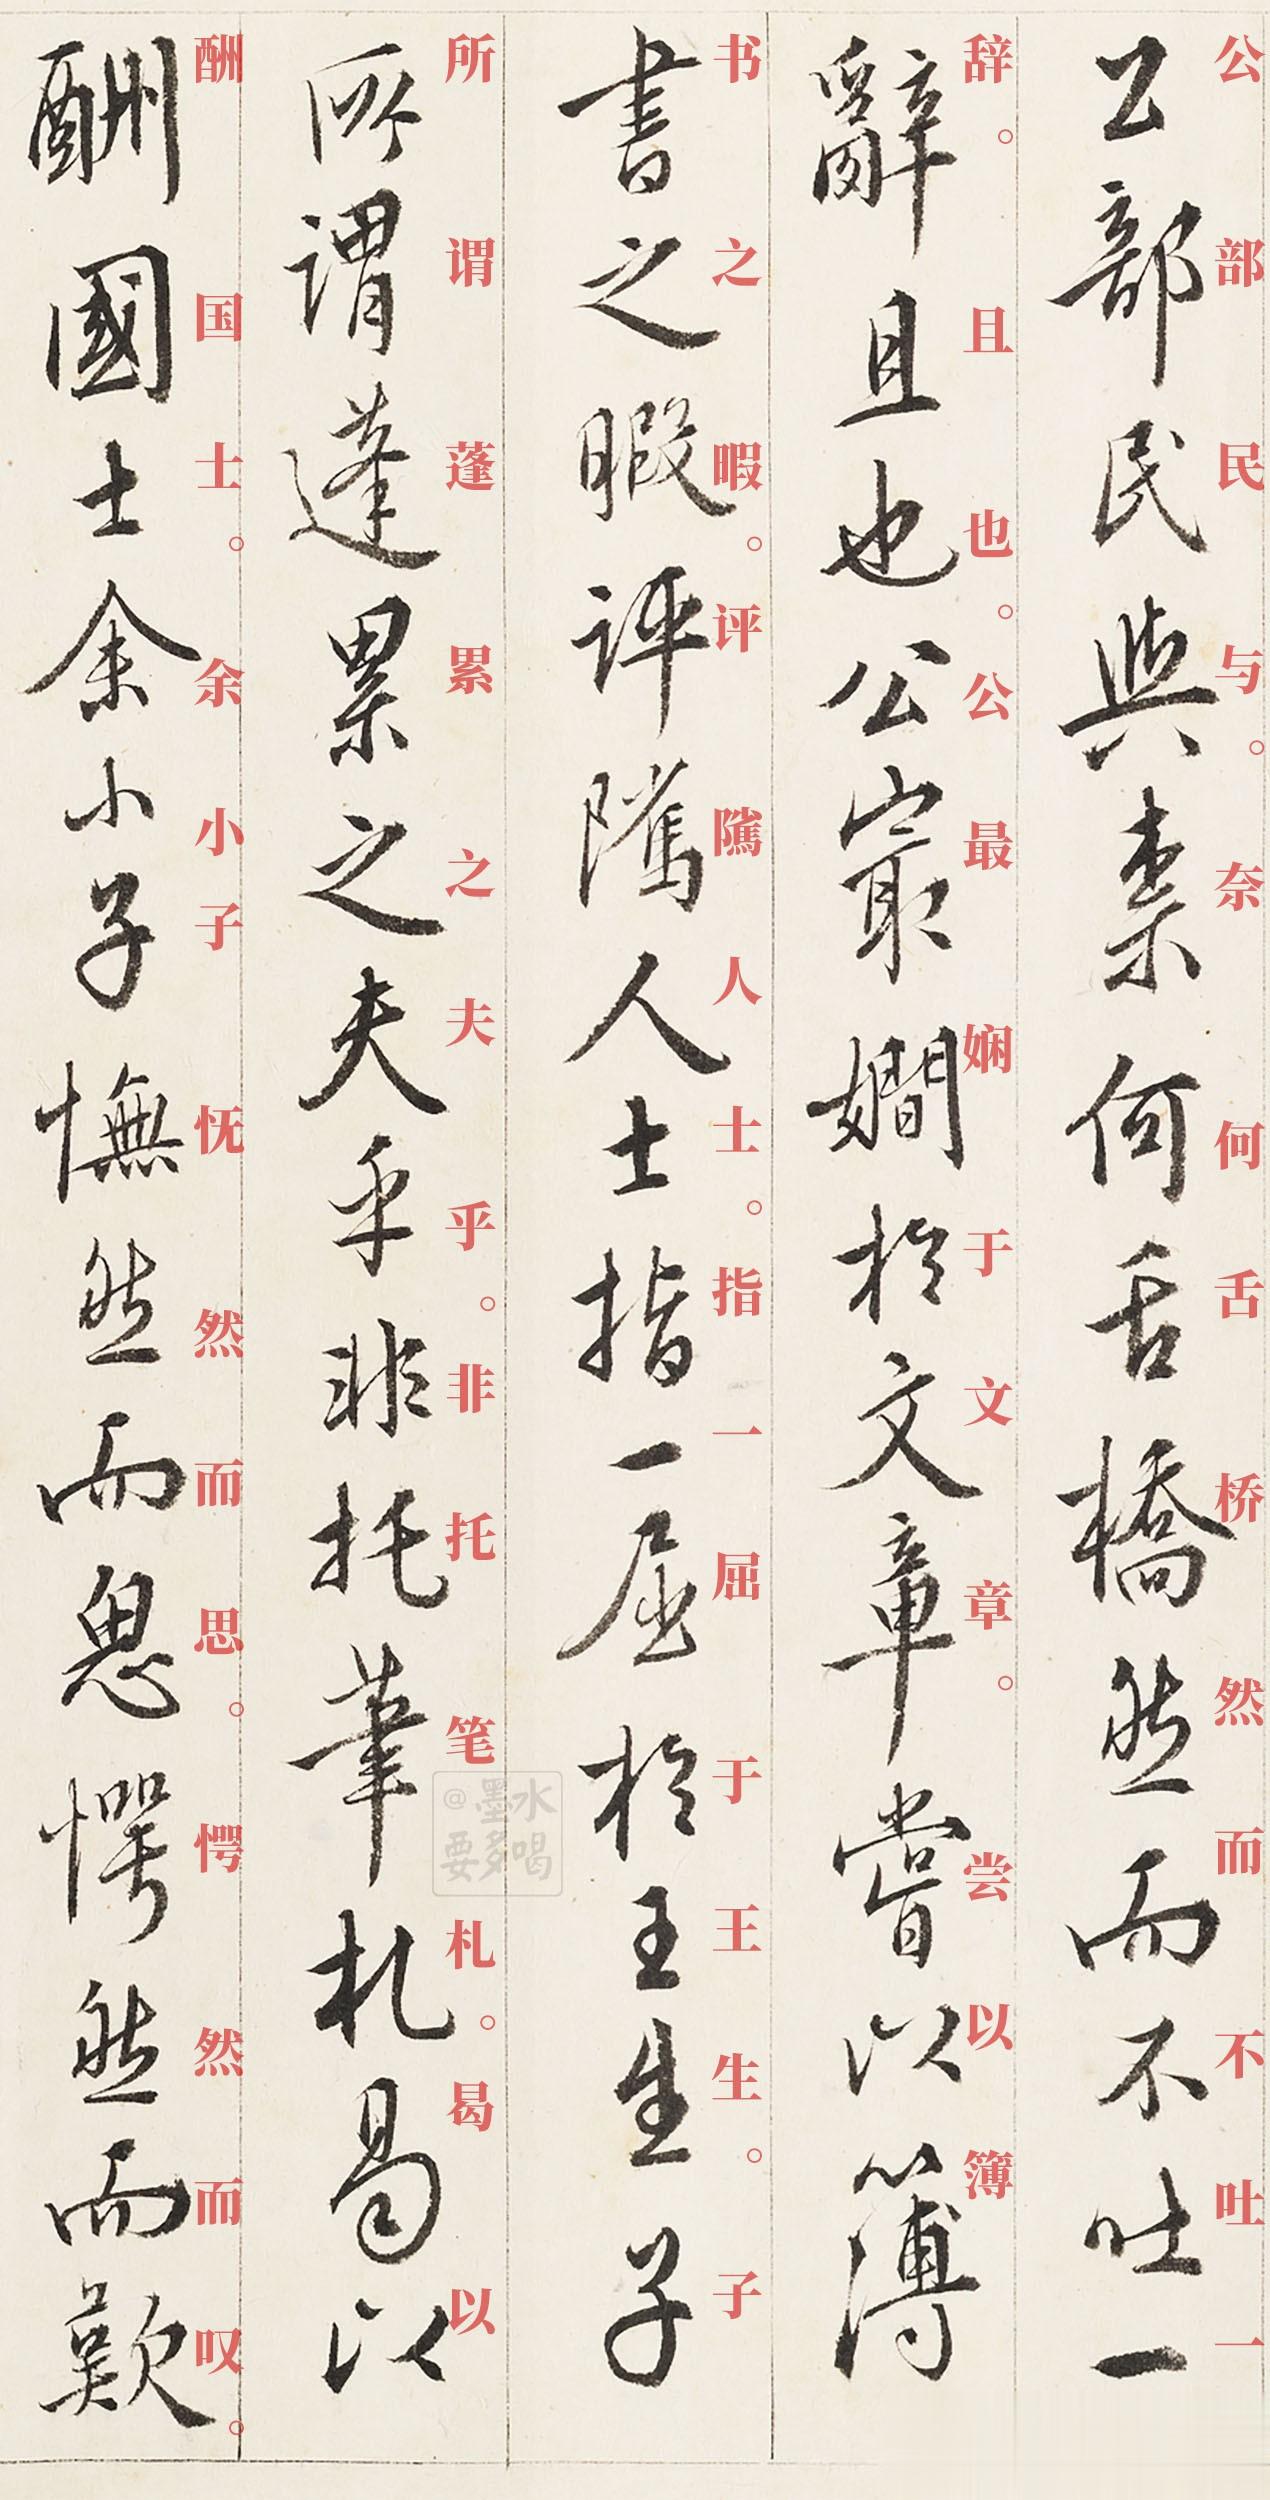 公部民与。奈何舌桥然而不吐一
公部民與柰何舌橋然而不吐一
辞。且也。公最娴于文章。尝以簿
辭且也公最嫺於文章嘗以簿
书之暇。评隲人士。指一屈于王生。子
書之暇評隲人士指一屈於王生子
所谓蓬累之夫乎。非托笔札。曷以
所謂蓬累之夫乎非托筆札曷以
酬国士。余小子怃然而思。愕然而叹。
酬國士余小子憮然而思愕然而歎
@墨水
要多喝